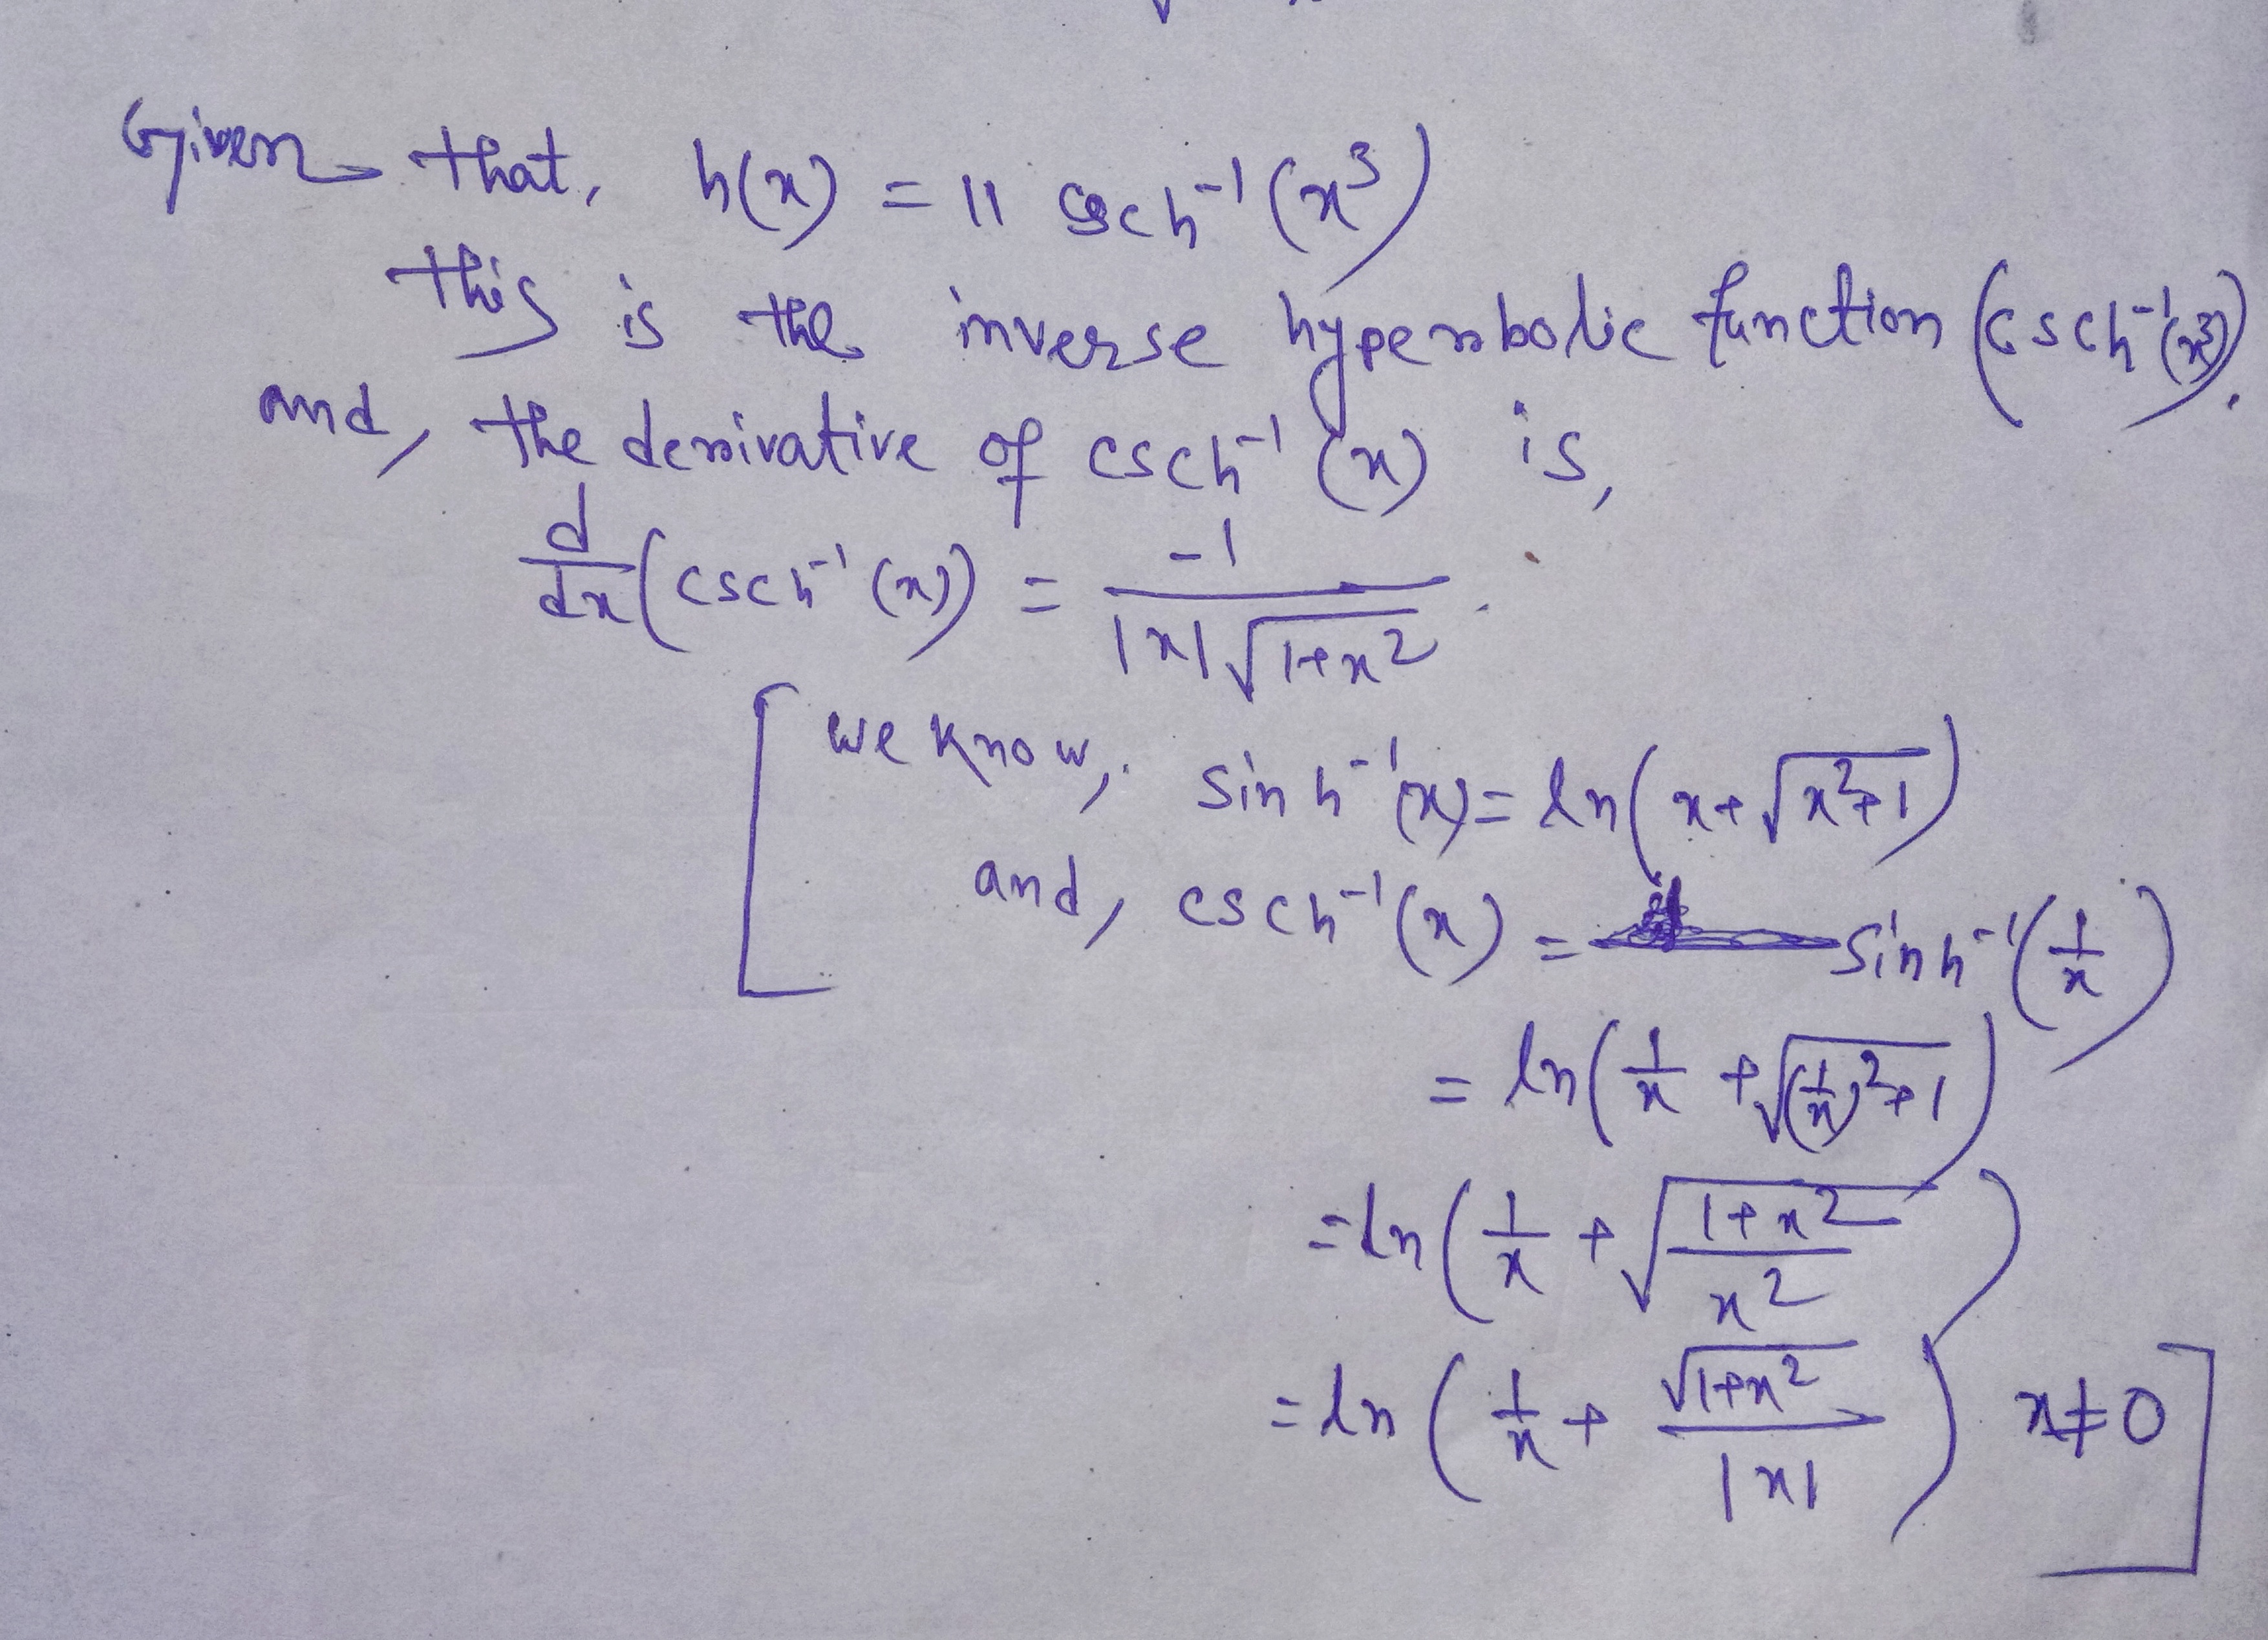 Given that, h(x) = 11 csch⁻¹(x³)
this is the inverse hyperbolic function (csch⁻¹(x³)).
and, the derivative of csch⁻¹(x) is,
d/dx (csch⁻¹(x)) = -1/(|x|√(1+x²)).
[ we know, sinh⁻¹(x) = ln(x+√(x²+1))
and, csch⁻¹(x) = sinh⁻¹(1/x)
= ln(1/x + √((1/x)²+1))
= ln(1/x + √((1+x²)/x²))
= ln(1/x + √(1+x²)/|x|) x≠0 ]